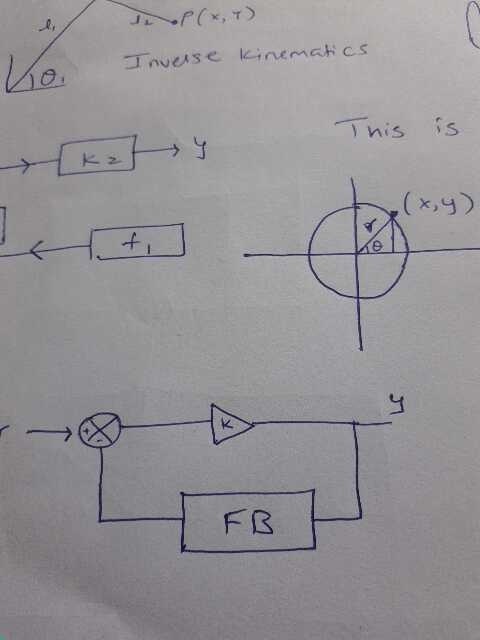 l1
l2
P(x,y)
θ1
Inverse kinematics
This is
K2
y
f1
(x,y)
r
θ
y
+
-
K
FB